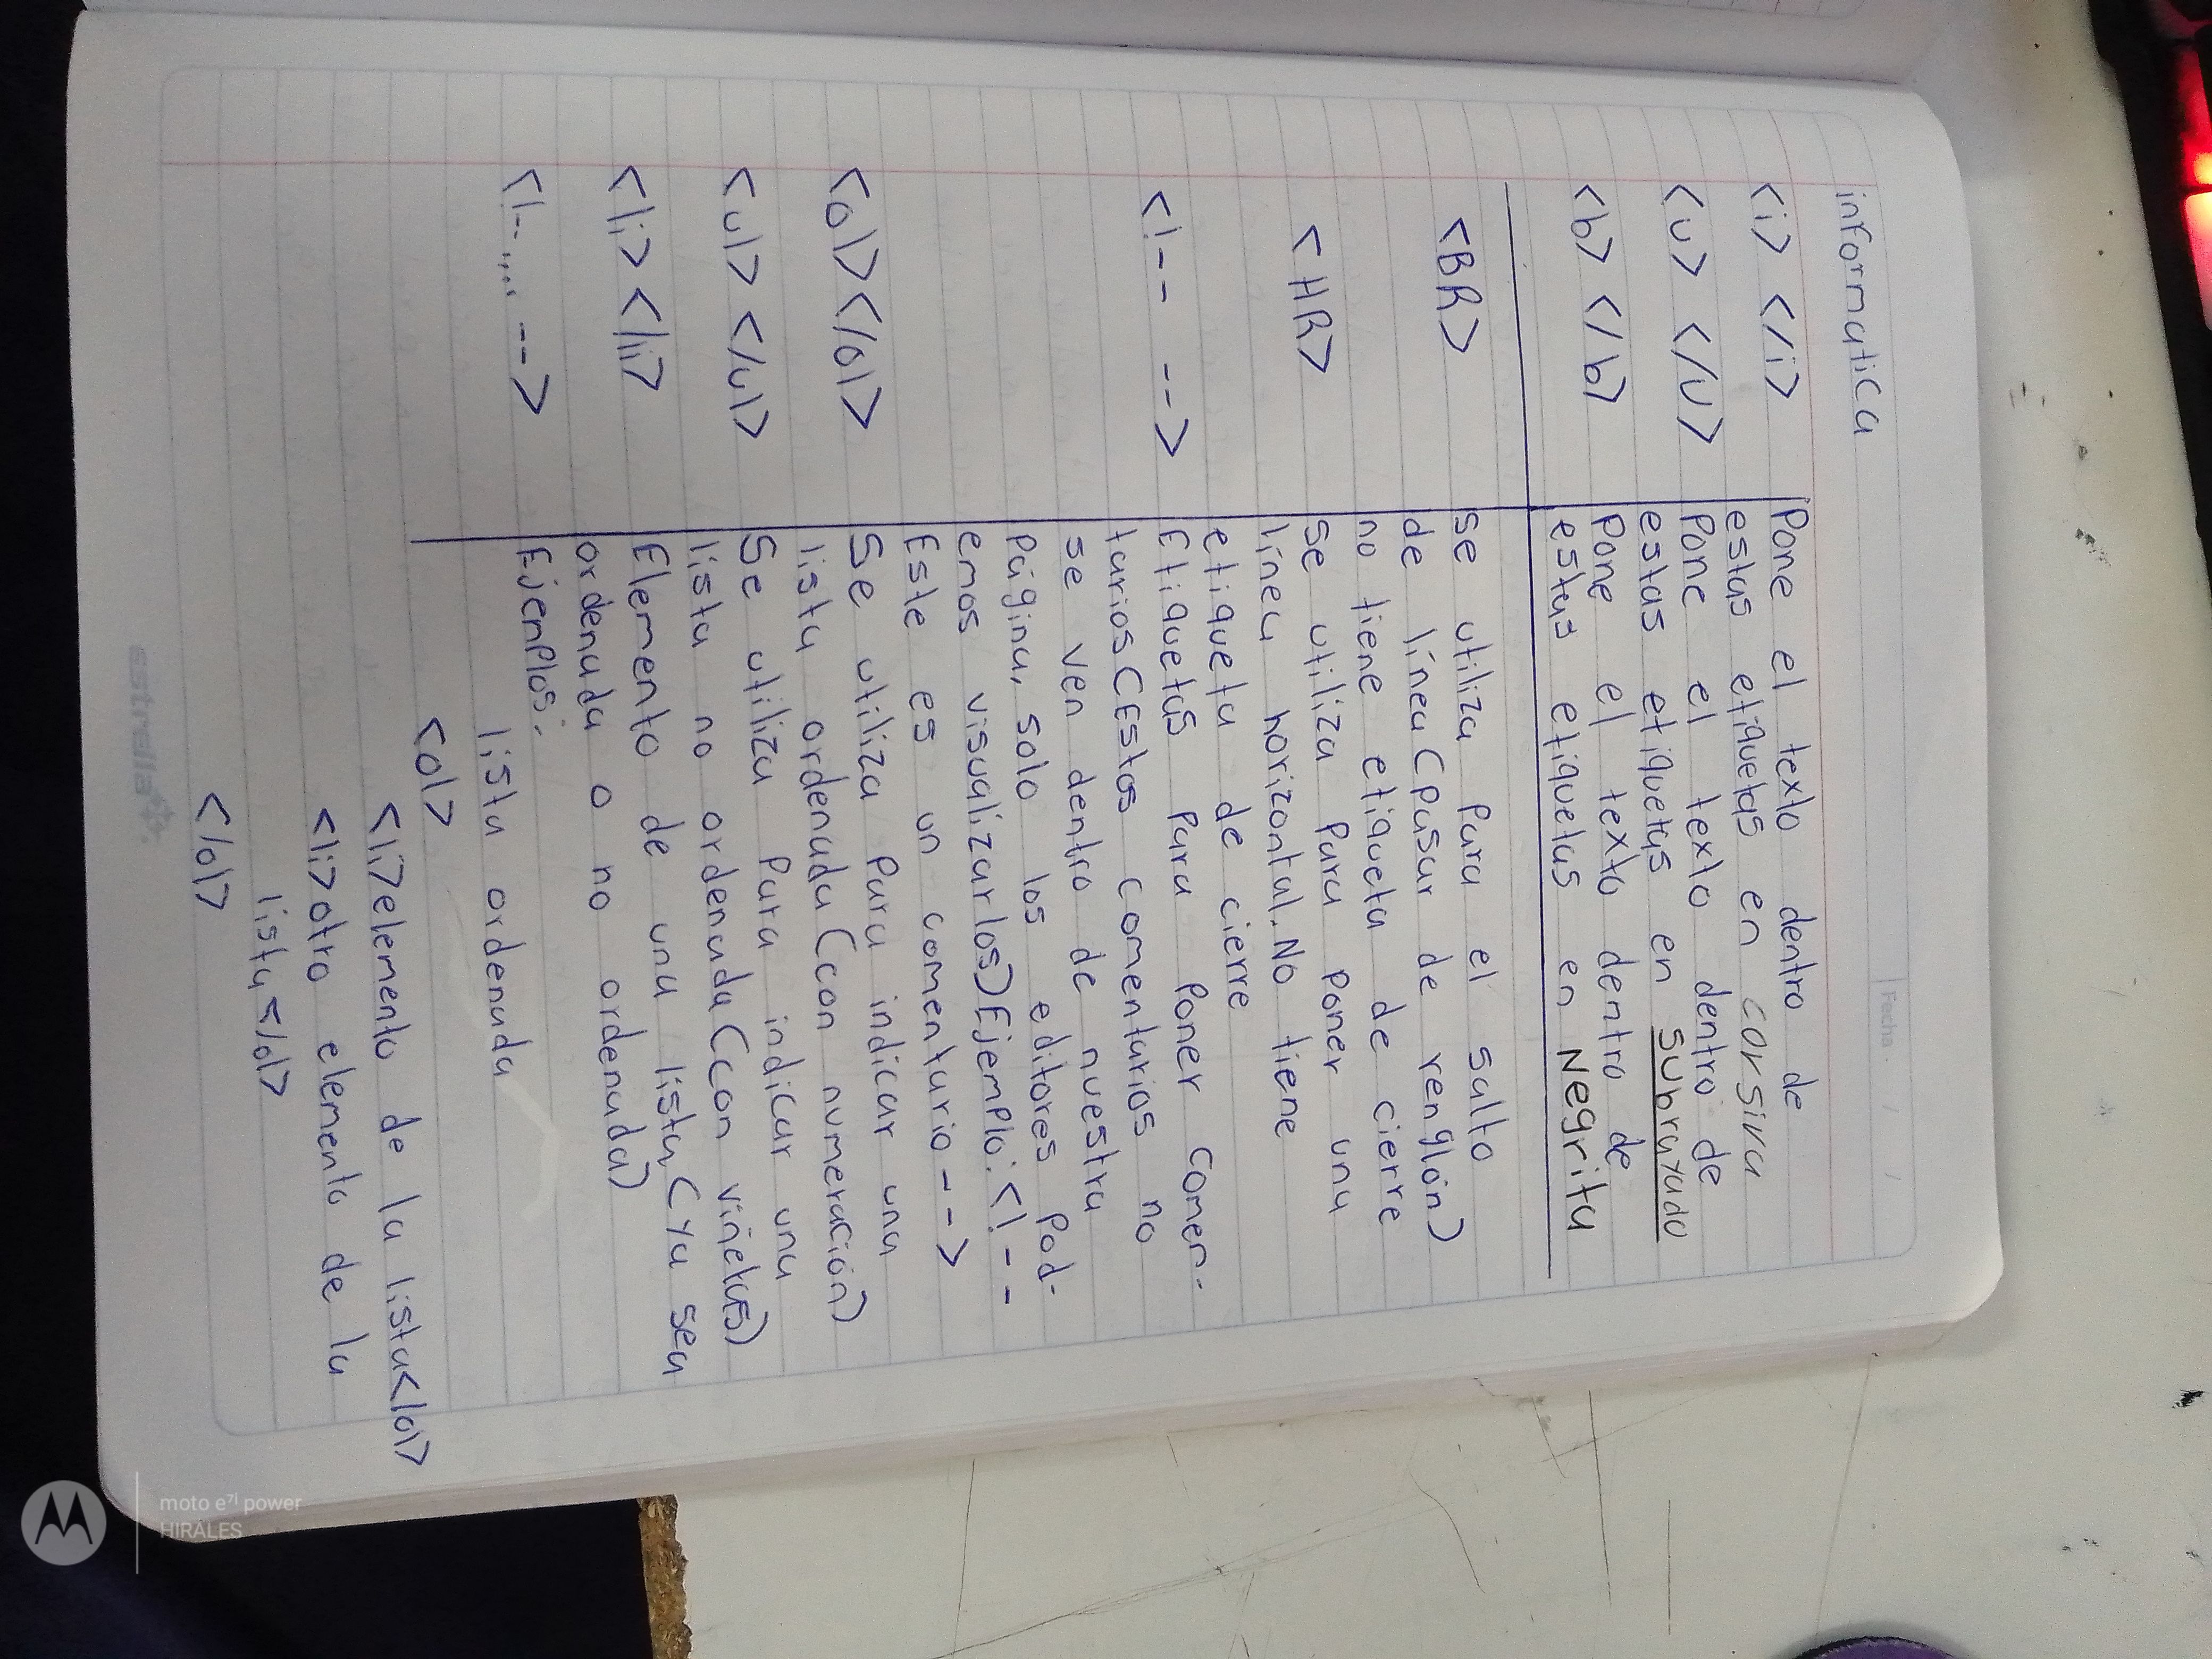 Fecha · / /
informatica
<i> </i> Pone el texto dentro de
estas etiquetas en corsiva
<u> </u> Pone el texto dentro de
estas etiquetas en subrayado
<b> </b> Pone el texto dentro de
estas etiquetas en Negrita
<BR> se utiliza para el salto
de línea (pasar de renglón)
no tiene etiqueta de cierre
<HR> se utiliza para poner una
línea horizontal. No tiene
etiqueta de cierre
<!-- --> Etiquetas para poner comen-
tarios (Estos comentarios no
se ven dentro de nuestra
página, solo los editores pod-
emos visualizarlos) Ejemplo: <!--
Este es un comentario -->
<ol></ol> Se utiliza para indicar una
lista ordenada (con numeración)
<ul></ul> Se utiliza para indicar una
lista no ordenada (con viñetas)
<li></li> Elemento de una lista, (ya sea
ordenada o no ordenada)
<!-- .... --> Ejemplos:
lista ordenada
<ol>
<li>elemento de la lista</ol>
<li>otro elemento de la
lista</ol>
</ol>
estrella
moto e⁷ⁱ power
HIRÁLES